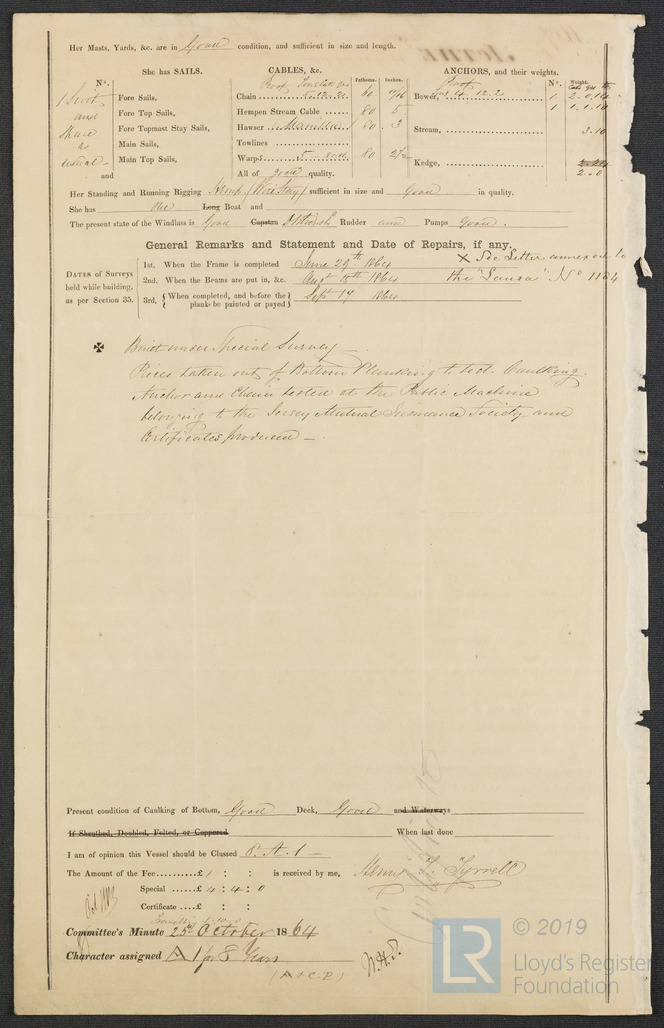 Her Masts, Yards, &c. are in Good condition, and sufficient in size and length.
She has SAILS.
CABLES, &c.
ANCHORS, and their weights.
Nº.
Fathoms.
Inches.
Nº.
Weight.
1 Suit
and
Spare
as
usual
Fore Sails,
Fore Top Sails,
Fore Topmast Stay Sails,
Main Sails,
Main Top Sails,
and
Proof
Chain 60 11/16
Hempen Stream Cable 80 5
Hawser Manilla 80 3
Towlines
Warps 80 2½
All of good quality.
Proof
Bower, 1
1 1.1.10
Stream, 3.10
Kedge,
2.0
Her Standing and Running Rigging Hemp (Wire Stay) sufficient in size and Good in quality.
She has one Long Boat and
The present state of the Windlass is Good Capstan Rudder and Pumps Good.
General Remarks and Statement and Date of Repairs, if any.
X See Letter annexed to
the "Laura" Nº 1124
DATES of Surveys
held while building,
as per Section 35.
1st. When the Frame is completed June 29th 1864
2nd. When the Beams are put in, &c. Augt 1864
3rd, { When completed, and before the plank be painted or payed } Sept 17 1864
Built under Special Survey
Pieces taken out of Bottom Planking to test Caulking.
Anchor and Chain tested at the Public Machine
belonging to the Jersey Mutual Insurance Society and
Certificates produced
Present condition of Caulking of Bottom, Good Deck, Good and Waterways
If Sheathed, Doubled, Felted, or Coppered
When last done
I am of opinion this Vessel should be Classed 8. A. 1
The Amount of the Fee £1 : : is received by me, Tyrrell
Special £4 : 4 : 0
Certificate £ : :
Committee's Minute 25th October 1864
Character assigned A 1 for 8 Years
(A & C.P.)
© 2019
LR
Lloyd's Register
Foundation